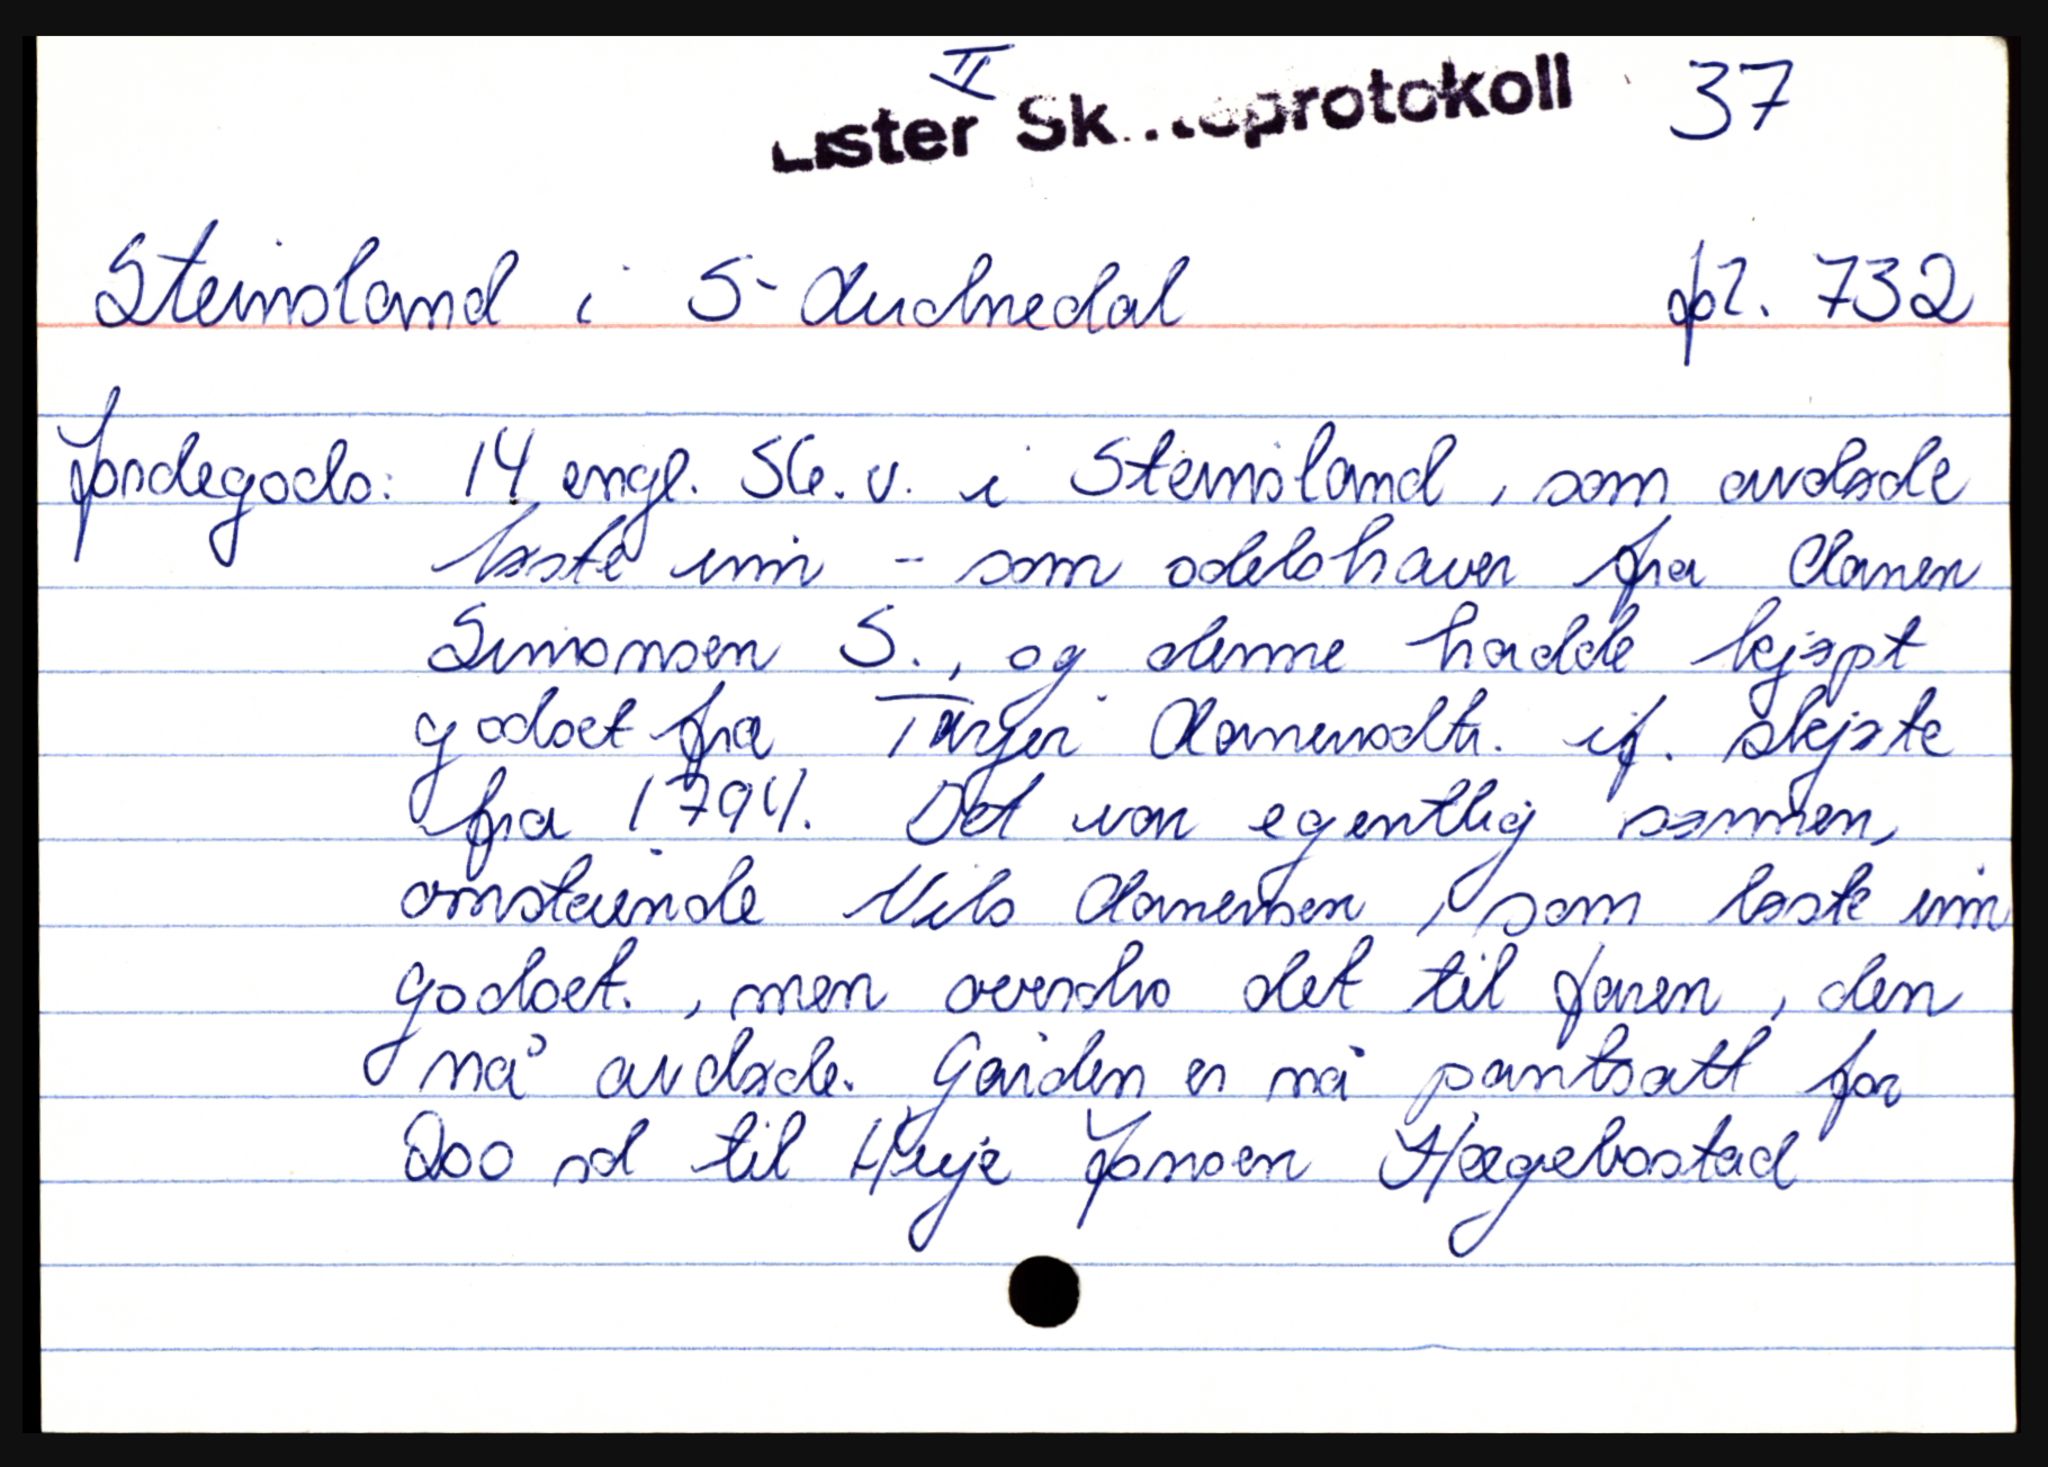 II
Lister Skifteprotokoll 37
Steinsland i S-Audnedal pr. 732
Jordegods: 14 engl. Sk. v. i Steinsland, som avdøde
løste inn - som odelshaver fra Aanen
Simonsen S., og denne hadde kjøpt
godset fra Targjer Aanensdtr. if. skjøte
fra 1794. Det var egentlig sønnen,
omstående Nils Aanensen, som løste inn
godset., men overdro det til faren, den
nå avdøde. Gården er nå pantsatt for
200 rd til Huje Jonsen Hægebostad